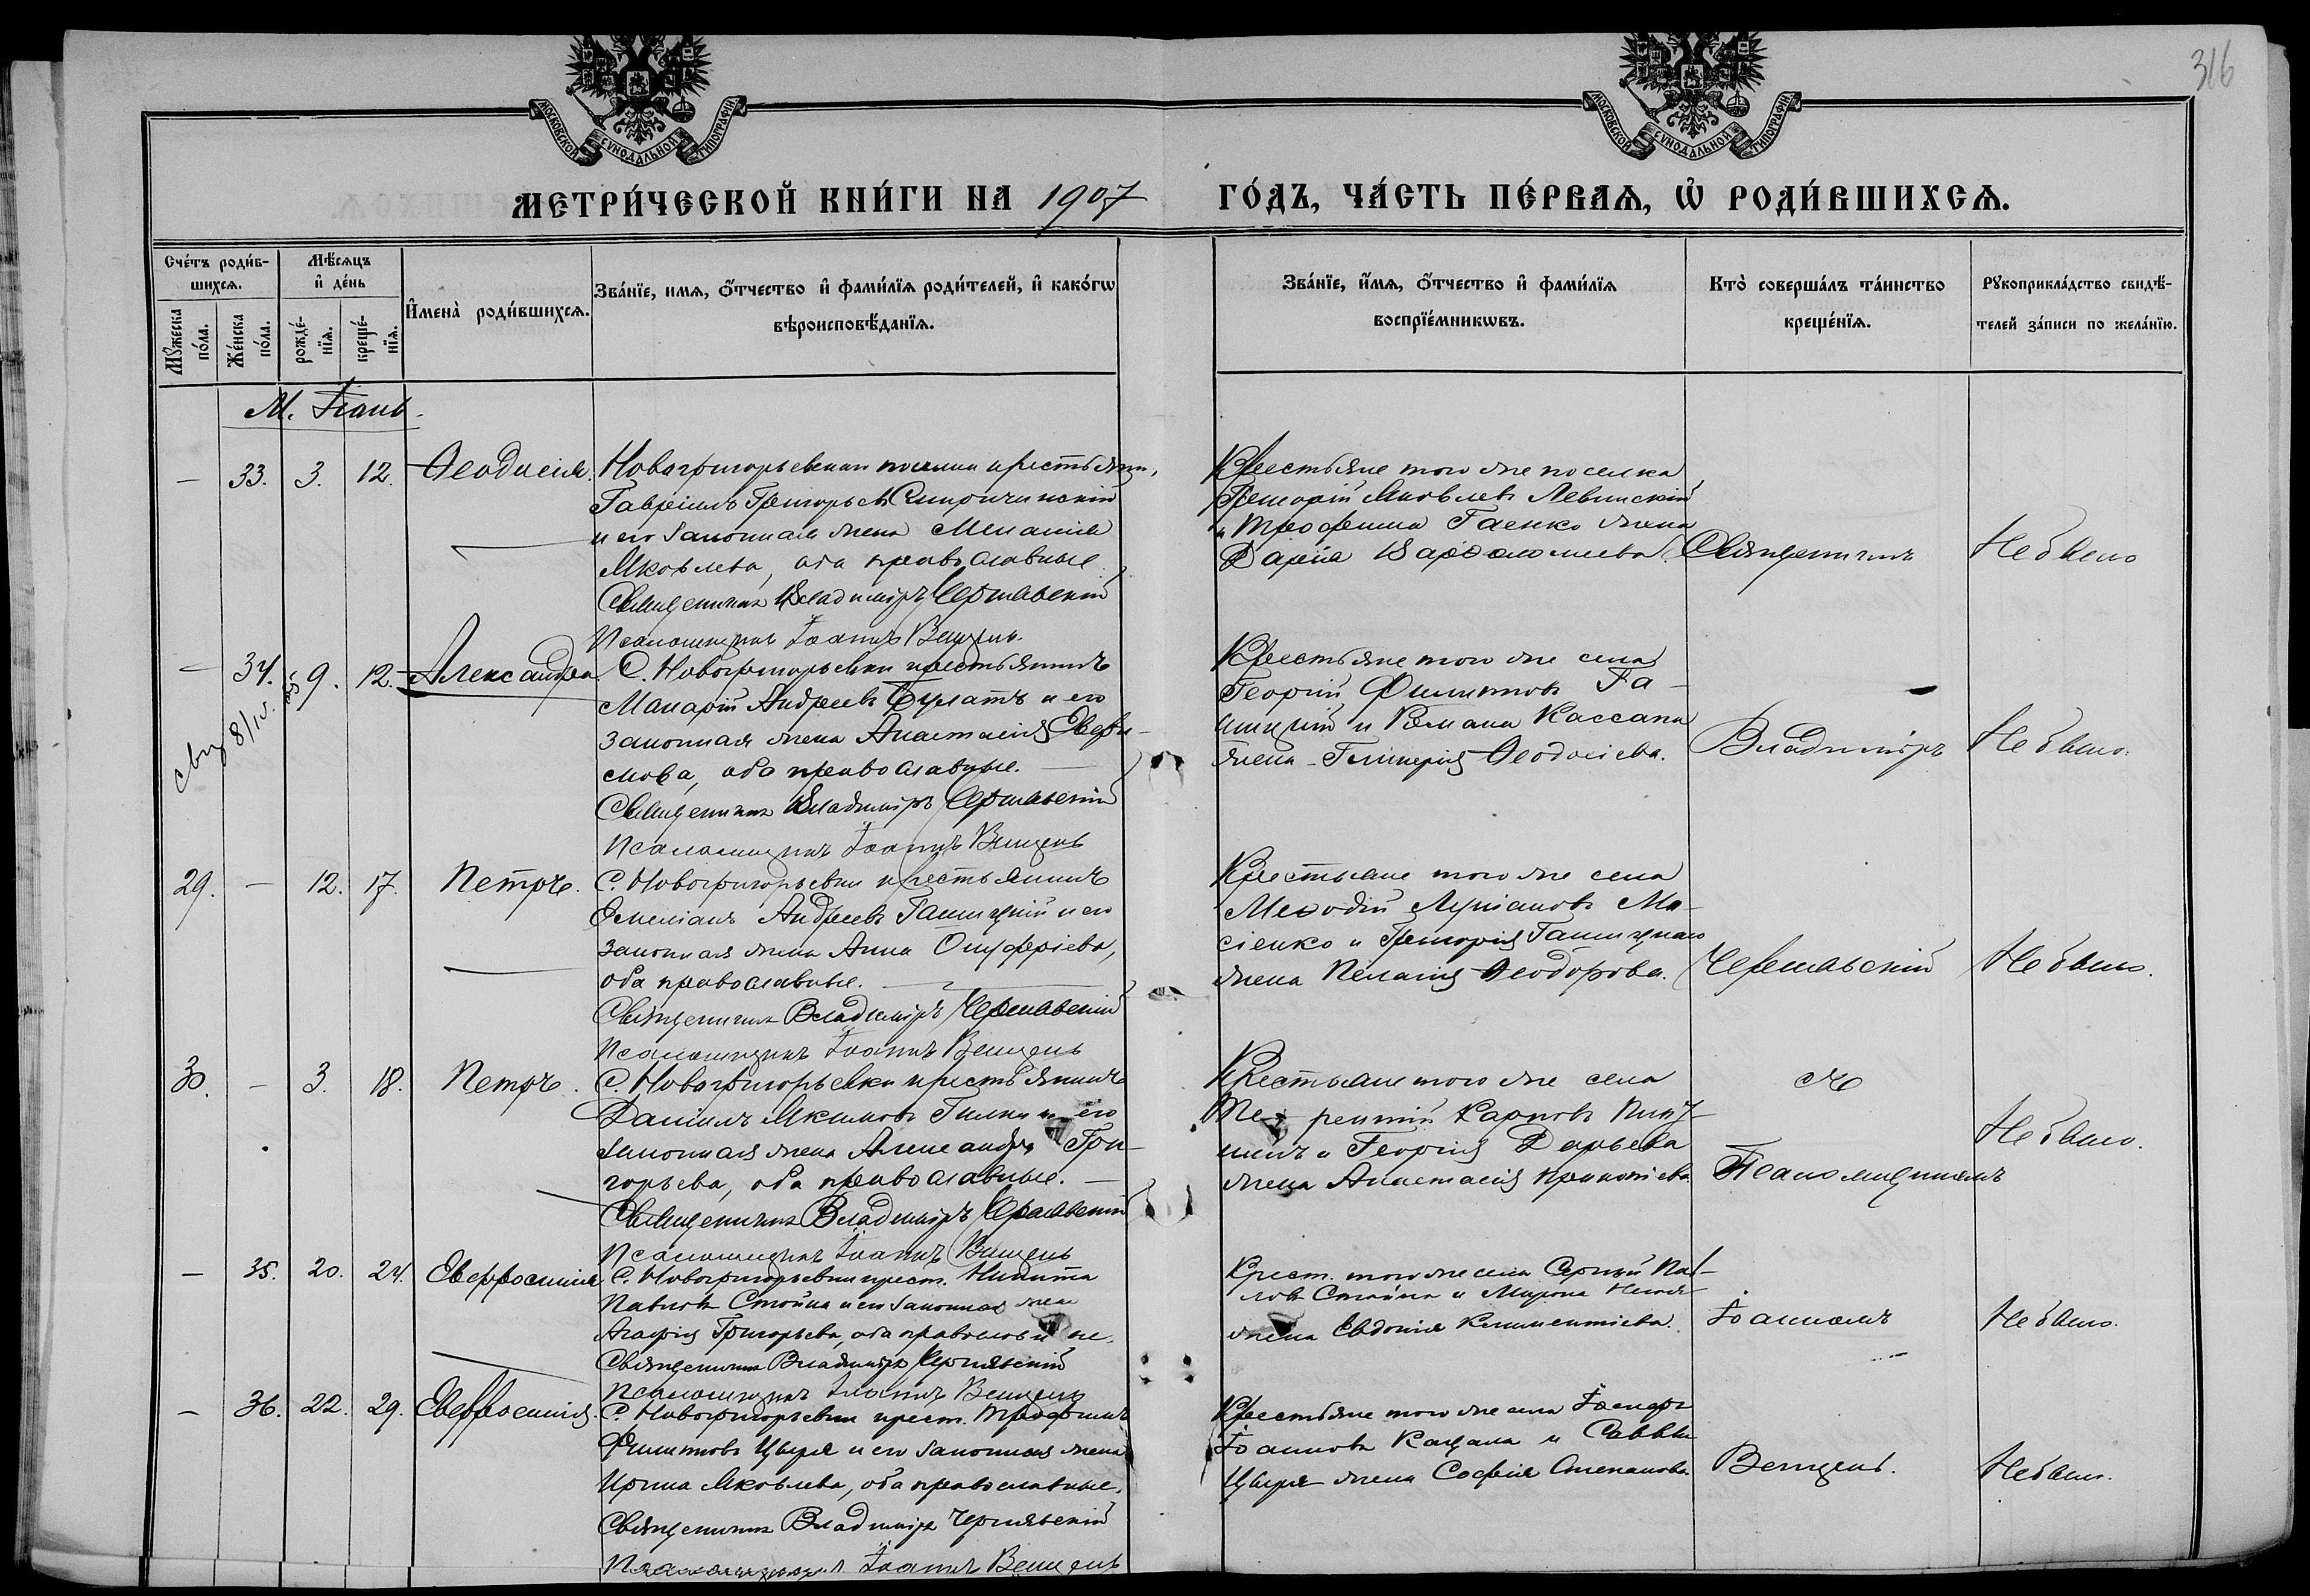 316
МОСКОВСКОЙ СУНОДАЛЬНОЙ ТИПОГРАФІИ
МОСКОВСКОЙ СУНОДАЛЬНОЙ ТИПОГРАФІИ
МЕТРИ́ЧЕСКОЙ КНИ́ГИ НА 1907 ГО́ДЪ, ЧА́СТЬ ПЕ́РВАѦ, Ѡ҆ РОДИ́ВШИХСѦ.
Сче́тъ роди́в-
шихсѧ.
Мꙋжеска по́ла.
Же́нска по́ла.
Мѣ́сѧцъ и҆ де́нь
рожде́-
нїѧ.
креще́-
нїѧ.
И҆мена̀ роди́вшихсѧ.
Зва́нїе, имѧ, ѻ҆́тчество и҆ фами́лїѧ роди́телей, и҆ како́гѡ
вѣроисповѣ́данїѧ.
Зва́нїе, и҆́мѧ, ѻ҆́тчество и҆ фами́лїѧ
воспрїе́мникѡвъ.
Кто̀ соверша́лъ та́инство
креще́нїѧ.
Рꙋкоприкла́дство свидѣ́-
телей за́писи по жела́нїю.
М.
— 33. 3. 12. Ѳеодосія. Новогригорьевскаго поселка крестьянин
Гавріилъ Григорьевъ
и его законная жена Меланія
Яковлева, оба православные.
Священникъ Владиміръ Чернявскій
Псаломщикъ Іоаннъ Венцель
Крестьяне того же поселка
Григорій Яковлевъ Левинскій
и Трофима Гаенко жена
Дарія Варѳоломеева.
Священникъ
Не было
— 34. 9. 12. Александра. С. Новогригорьевки крестьянинъ
Макарій Андреевъ Булатъ и его
законная жена Анастасія Евфи-
мова, оба православные.
Священникъ Владиміръ Чернявскій
Псаломщикъ Іоаннъ Венцель
8/IV
Крестьяне того же села
Георгій Филипповъ Га-
лицкій и Романа Кассана
жена Гликерія Ѳеодосіева.
Владиміръ
Не было.
29. — 12. 17. Петръ. С. Новогригорьевки крестьянинъ
Емеліанъ Андреевъ Галицкій и его
законная жена Анна Онуфріева,
оба православные.
Священникъ Владиміръ Чернявскій
Псаломщикъ Іоаннъ Венцель
Крестьяне того же села
Меѳодій Лукіановъ Ма-
сіенко и Григорія Галицкаго
жена Пелагія Ѳеодорова.
Чернявскій
Не было.
30. — 3. 18. Петръ. С. Новогригорьевки крестьянинъ
Даніилъ Якимовъ Гилка и его
законная жена Александра Гри-
горьева, оба православные.
Священникъ Владиміръ Чернявскій
Псаломщикъ Іоаннъ Венцель
Крестьяне того же села
Терентій Карповъ
и Георгія
жена Анастасія Прокопіева
съ
Псаломщикомъ
Не было.
— 35. 20. 24. Евфросинія С. Новогригорьевки крест. Никита
Павловъ Стойка и его законная жена
Агафія Григорьева, оба православные.
Священникъ Владиміръ Чернявскій
Псаломщикъ Іоаннъ Венцель
Крест. того же села Сергѣй Пав-
ловъ Стойка и Мирона
жена Евдокія Климентіева.
Іоанномъ
Не было.
— 36. 22. 29. Евфросинія. С. Новогригорьевки крест. Трофимъ
Филипповъ Цыря и его законная жена
Ирина Яковлева, оба православные.
Священникъ Владиміръ Чернявскій
Псаломщикъ Іоаннъ Венцель
Крестьяне того же села
Іоанновъ Кацала и Саввы
Цыря жена Софія Степанова.
Венцель.
Не было.